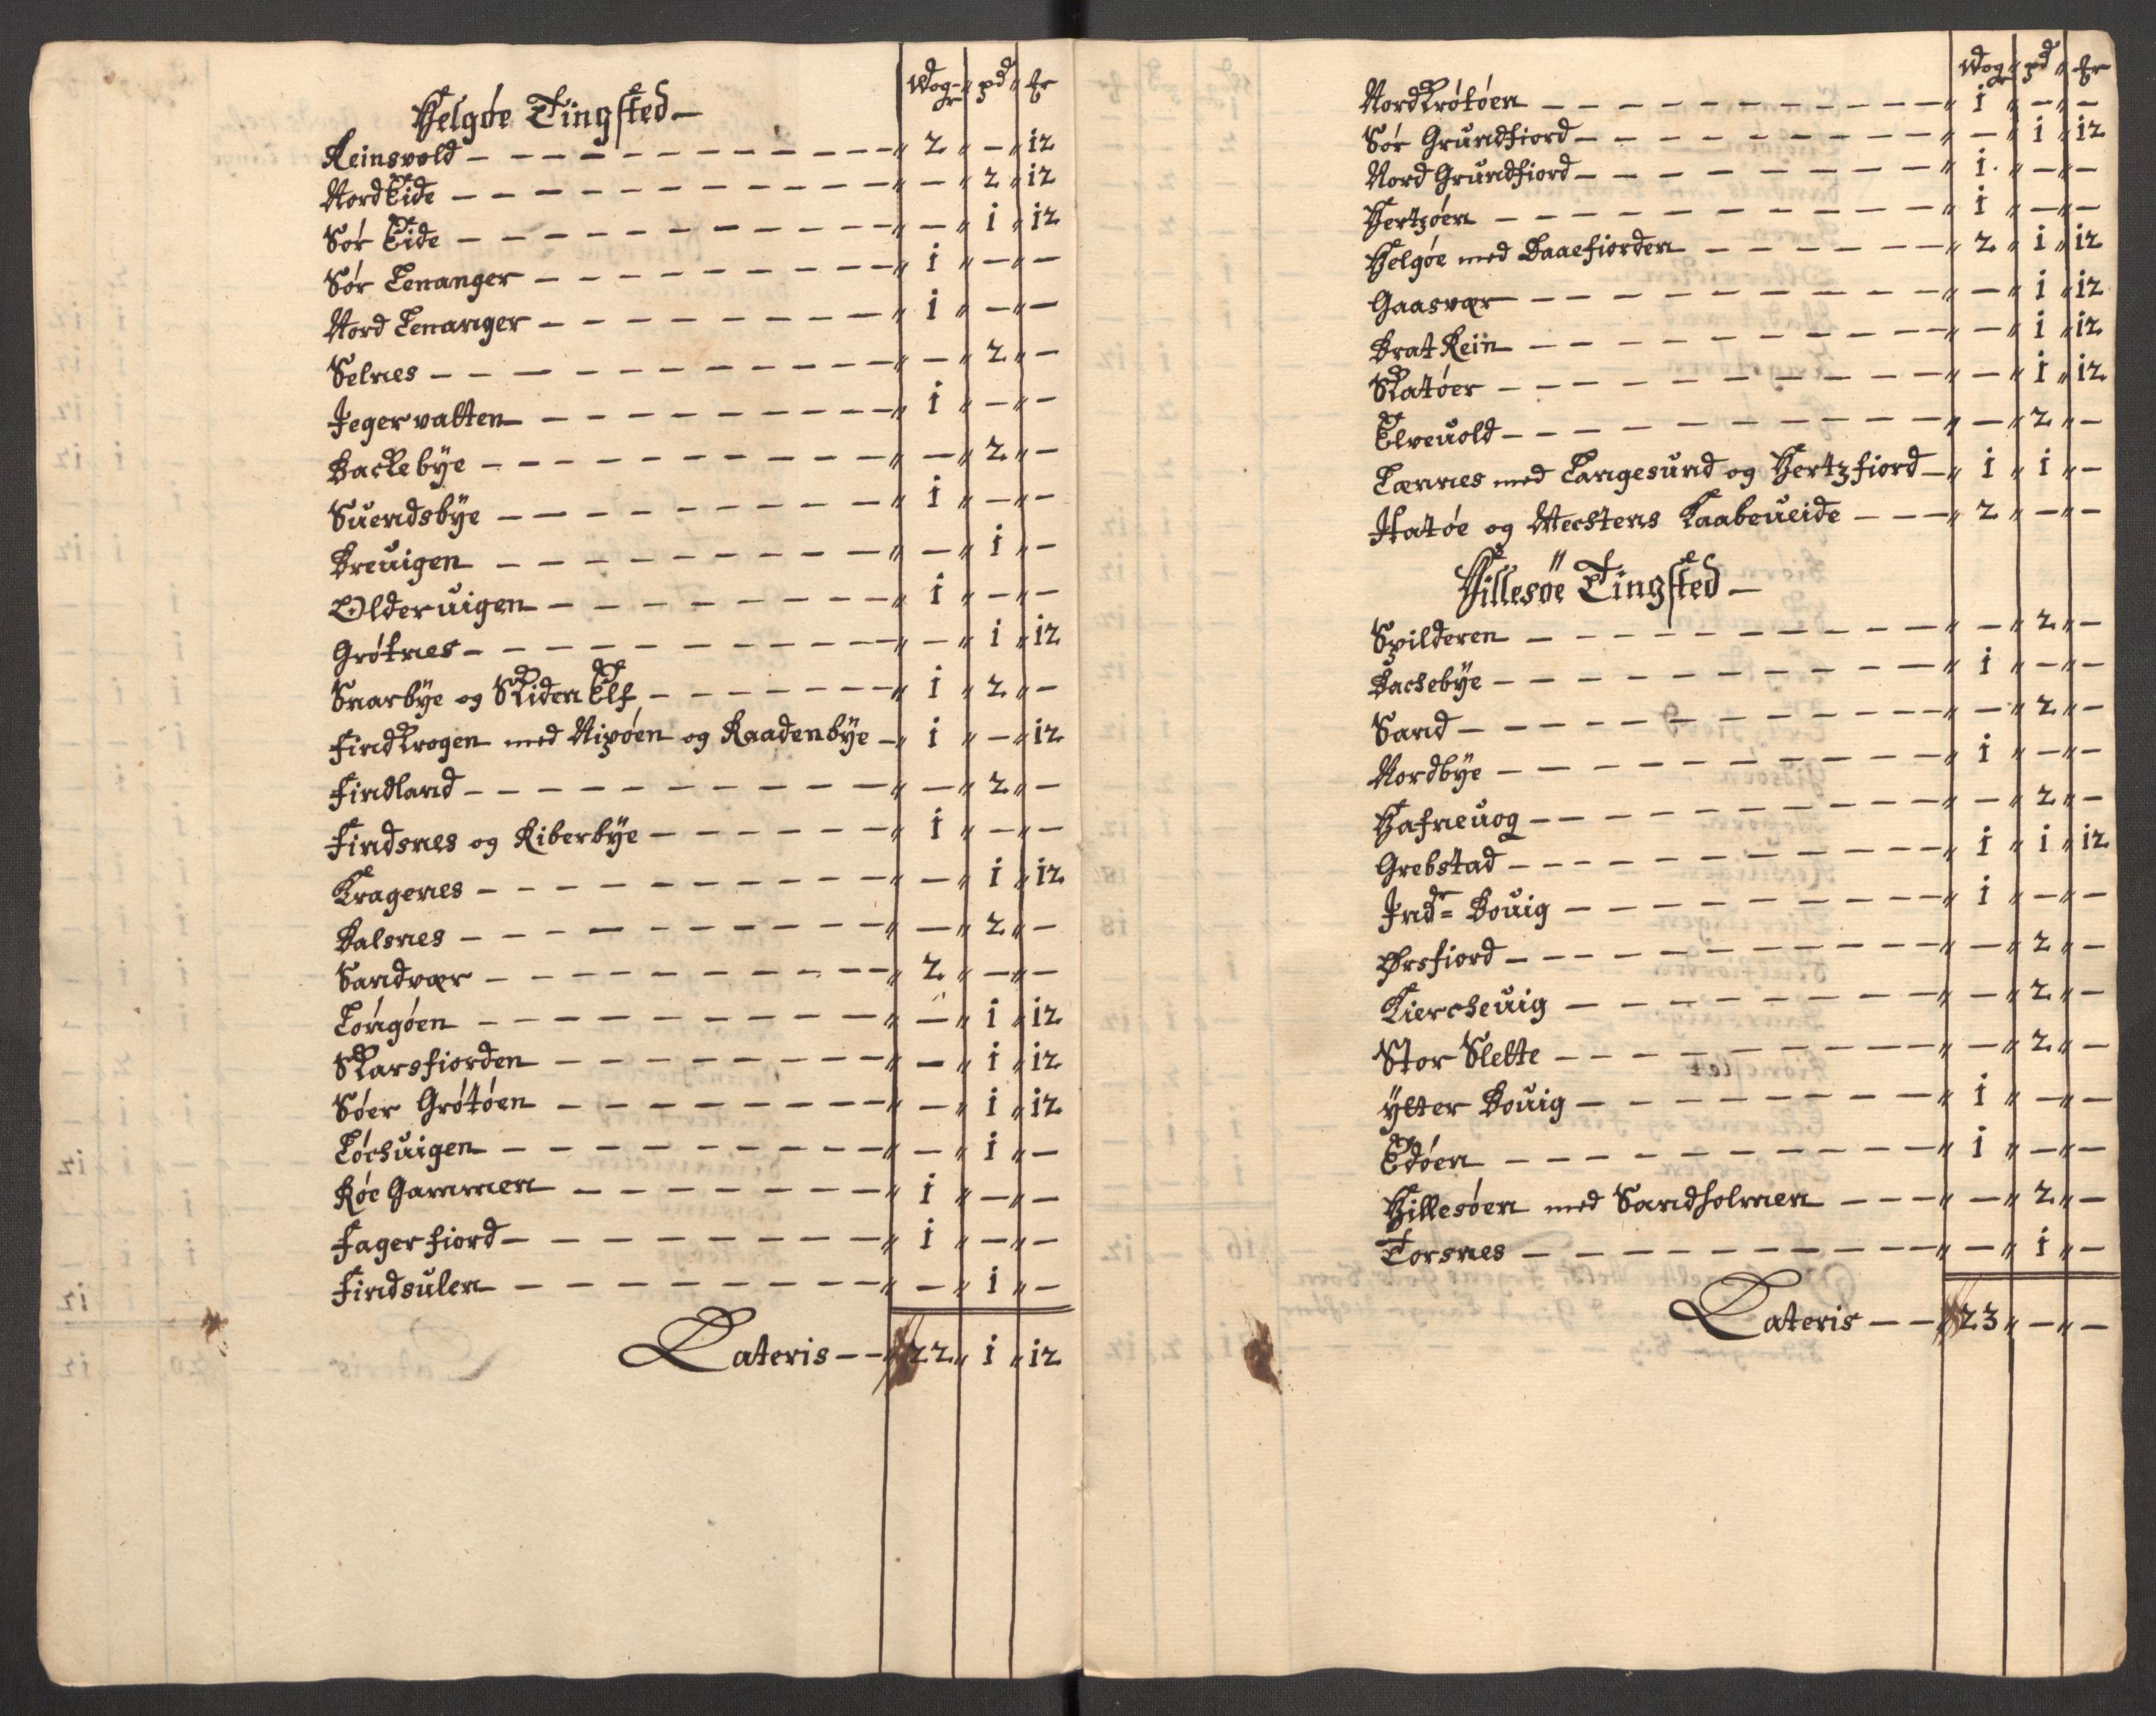 Wog- pd Er
Helgøe Tingsted —
Reinsvold — 2 „ — „ 12
NordEide — „ — „ 2 „ 12
Sør Eide — „ — „ 1 „ 12
Sør Lenanger — „ 1 „ — „ —
Nord Lenanger — „ 1 „ — „ —
Selnes — „ — „ 2 „ —
Jegervatten — „ 1 „ — „ —
Backebÿe — „ — „ 2 „ —
Suendsbÿe — „ 1 „ — „ —
Breuigen — „ — „ 1 „ —
Olderuigen — „ 1 „ — „ —
Grøtnes — „ — „ 1 „ 12
Snarbÿe og SkidenElf — „ 1 „ 2 „ —
Findkrogen med Nipøen og Raadenbÿe — „ 1 „ — „ 12
Findland — „ — „ 2 „ —
Findsnes og Riberbÿe — „ 1 „ — „ —
Kragenes — „ — „ 1 „ 12
Balsnes — „ — „ 2 „ —
Sandvær — „ 2 „ — „ —
Løngøen — „ — „ 1 „ 12
Skarsfiorden — „ — „ 1 „ 12
Søer Grøtøen — „ — „ 1 „ 12
Løchuigen — „ — „ 1 „ —
Røe Gammen — „ 1 „ — „ —
Fagerfiord — „ 1 „ — „ —
Findsulen — „ — „ 1 „ —
Lateris — „ 22 „ 1 „ 12
Wog pd Er
NordKrøtøen — „ 1 „ — „ —
Sør Grundfiord — „ — „ 1 „ 12
Nord Grundfiord — „ 1 „ — „ —
Hertzøen — „ 1 „ — „ —
Helgøe med Daaefiorden — „ 2 „ 1 „ 12
Gaasvær — „ — „ 1 „ 12
BratRein — „ — „ 1 „ 12
Skatøer — „ — „ 1 „ 12
Elveuold — „ — „ 2 „ —
Lannes med Langesund og Hertzfiord — „ 1 „ 1 „ —
Jtatøe og Mechtens Kaabeueide — „ 2 „ — „ —
Hillesöe Tingsted —
Spilderen — „ — „ 2 „ —
Bachebÿe — „ 1 „ — „ —
Sand — „ — „ 2 „ —
Nordbÿe — „ 1 „ — „ —
Hafneuog — „ — „ 2 „ —
Grebstad — „ 1 „ 1 „ 12
Jndr= Bouig — „ 1 „ — „ —
Ørsfiord — „ — „ 2 „ —
Kiercheuig — „ — „ 2 „ —
Stor Slette — „ — „ 2 „ —
ÿtter Bouig — „ 1 „ — „ —
Edøen — „ 1 „ — „ —
Hillesøen med Sandholmen — „ — „ 2 „ —
Torsnes — „ — „ 1 „ —
Lateris — „ 23 „ — „ —